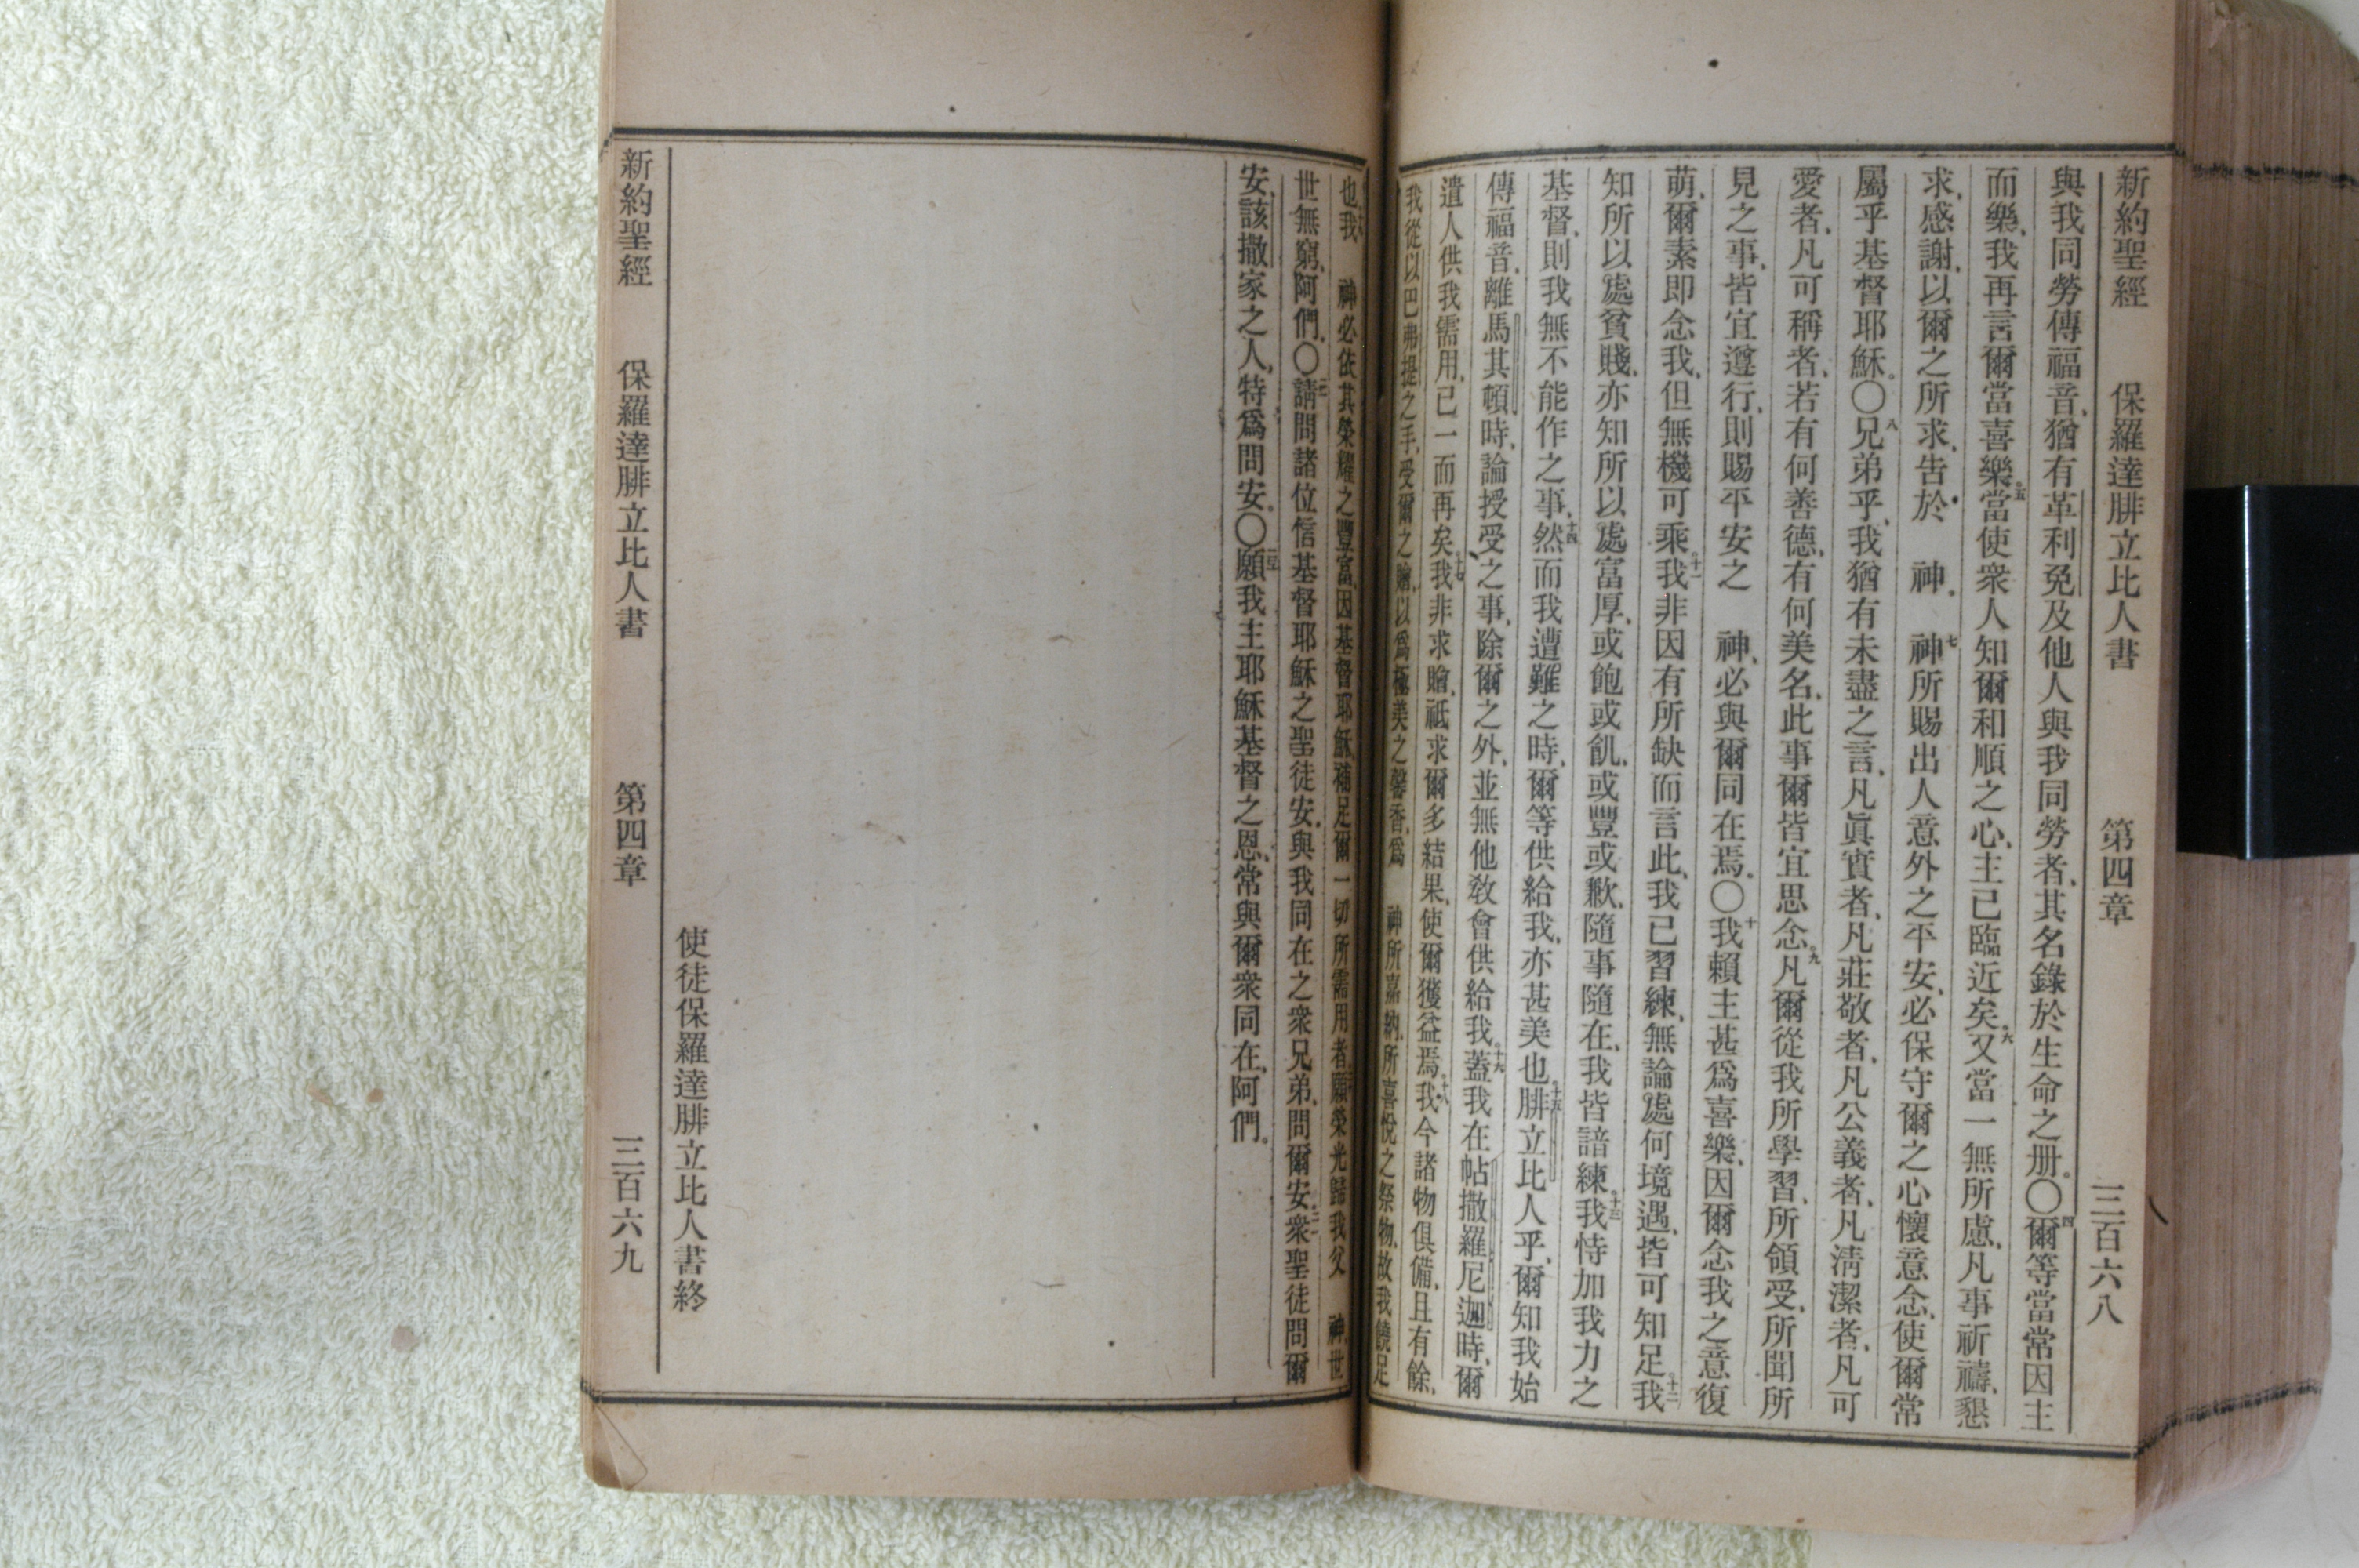 新約聖經 保羅達腓立比人書 第四章 三百六八
與我同勞傳福音、猶有革利免及他人與我同勞者、其名錄於生命之册。〇四爾等當常因主
而樂、我再言爾當喜樂。五當使衆人知爾和順之心、主已臨近矣。六又當一無所慮、凡事祈禱、懇
求、感謝、以爾之所求、告於 神。 七神所賜出人意外之平安、必保守爾之心懷意念、使爾常
屬乎基督耶穌。〇八兄弟乎、我猶有未盡之言、凡眞實者、凡莊敬者、凡公義者、凡淸潔者、凡可
愛者、凡可稱者、若有何善德、有何美名、此事爾皆宜思念。九凡爾從我所學習、所領受、所聞所
見之事、皆宜遵行、則賜平安之 神、必與爾同在焉。〇十我賴主甚爲喜樂、因爾念我之意復
萌、爾素卽念我、但無機可乘。十一我非因有所缺而言此、我已習練、無論處何境遇、皆可知足。十二我
知所以處貧賤、亦知所以處富厚、或飽或飢、或豐或歉、隨事隨在、我皆諳練。十三我恃加我力之
基督、則我無不能作之事。十四然而我遭難之時、爾等供給我、亦甚美也。十五腓立比人乎、爾知我始
傳福音、離馬其頓時、論授受之事、除爾之外、並無他敎會供給我。十六蓋我在帖撒羅尼迦時、爾
遣人供我需用、已一而再矣。十七我非求贈、祗求爾多結果、使爾獲益焉。十八我今諸物俱備、且有餘、
我從以巴弗提之手、受爾之贈、以爲極美之馨香、爲 神所嘉納、所喜悅之祭物、故我饒足
也。我 神必依其榮耀之豐富、因基督耶穌補足爾一切所需用者。願榮光歸我父 神、世
世無窮、阿們。〇請問諸位信基督耶穌之聖徒安、與我同在之衆兄弟、問爾安。衆聖徒問爾
安、該撒家之人、特爲問安。〇願我主耶穌基督之恩、常與爾衆同在、阿們。
使徒保羅達腓立比人書終
新約聖經 保羅達腓立比人書 第四章 三百六九